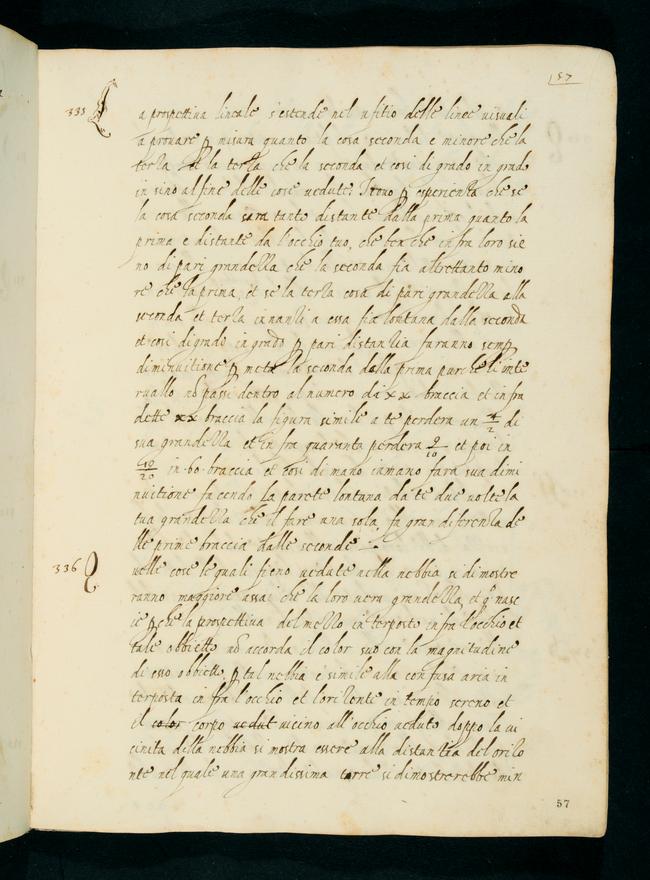 157
335 La prospettiva lineale s'estende nel ufitio delle linee visuali
a provare ꝑ misura quanto la cosa seconda e minore che la
terza et la terza che la seconda et cosi di grado in grado
in sino al fine delle cose vedute; Trovo ꝑ esperienza che se
la cosa seconda sara tanto distante dalla prima quanto la
prima e distante da l'occhio tuo, che ben che infra loro sie
no di pari grandezza che la seconda fia altrettanto mino
re che la prima, et se la terza cosa di pari grandezza alla
seconda et terza inanzi a essa fia lontana dalla seconda
et cosi di grado in grado ꝑ pari distanzia faranno semꝑ
diminuitione ꝑ meta la seconda della prima pur che l'inte
ruallo nō passi dentro al numero di xx braccia et infra
dette xx braccia la figura simile a te perdera un
di
sua grandezza et in fra quaranta perdera 9/10 et poi in
19/20 in ·60· braccia et cosi di mano in mano fara sua dimi
nuitione facendo la parete lontana da te due volte la
tua grandezza che il fare una sola, fa gran diferenza de
lle prime braccia dalle seconde
336 Quelle cose le quali fieno vedute nella nebbia si dimostre
ranno maggiore assai che la loro vera grandezza, et q° nasc
ie ꝑ che la prospettiva del mezzo in terposto infra l'occhio et
tale obbietto nō accorda il color suo con la magnitudine
di esso obbietto ꝑ tal nebbia e simile alla confusa aria in
terposta in fra l'occhio et l'orizonte in tempo sereno et
il color corpo vedut vicino all'occhio veduto doppo la vi
cinita della nebbia si mostra essere alla distantia del orizo
nte nel quale una grandissima torre si dimostrerebbe min
57